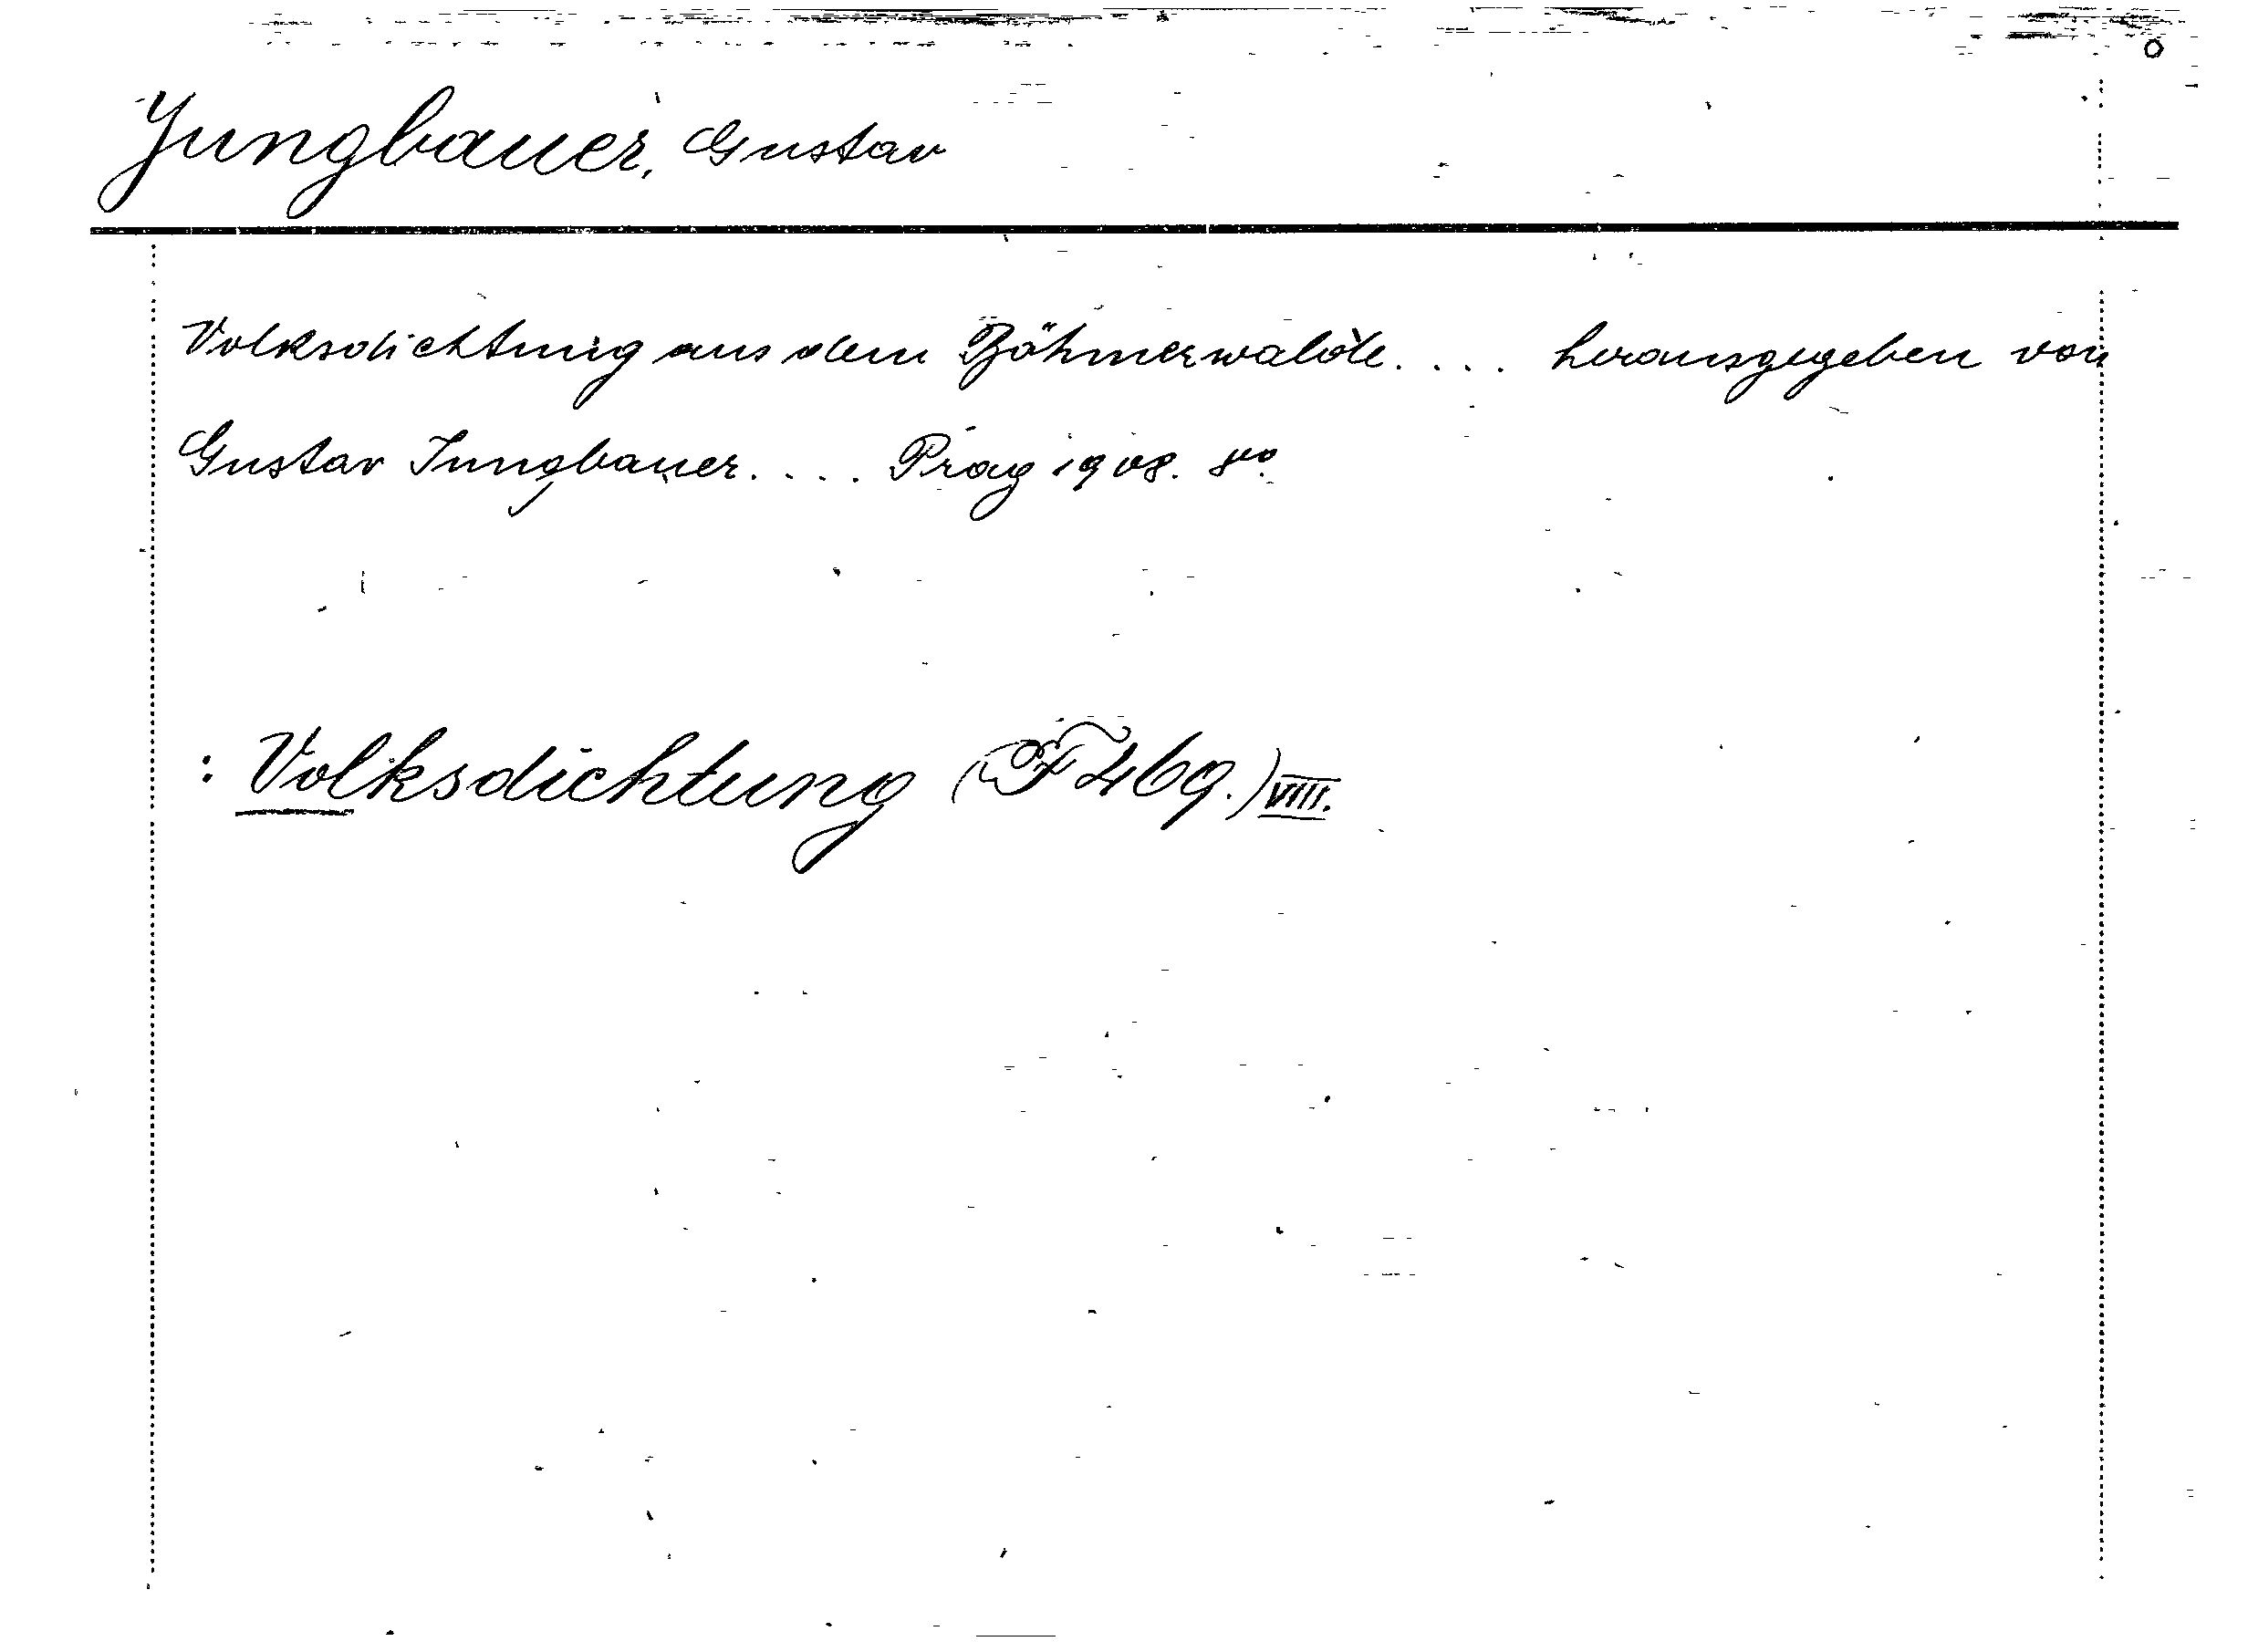 Jungbauer, Gustav
Volksdichtung aus dem Böhmerwalde.... herausgegeben von
Gustav Jungbauer.... Prag 1908. 8vo.
: Volksdichtung (F 469.) VIII.